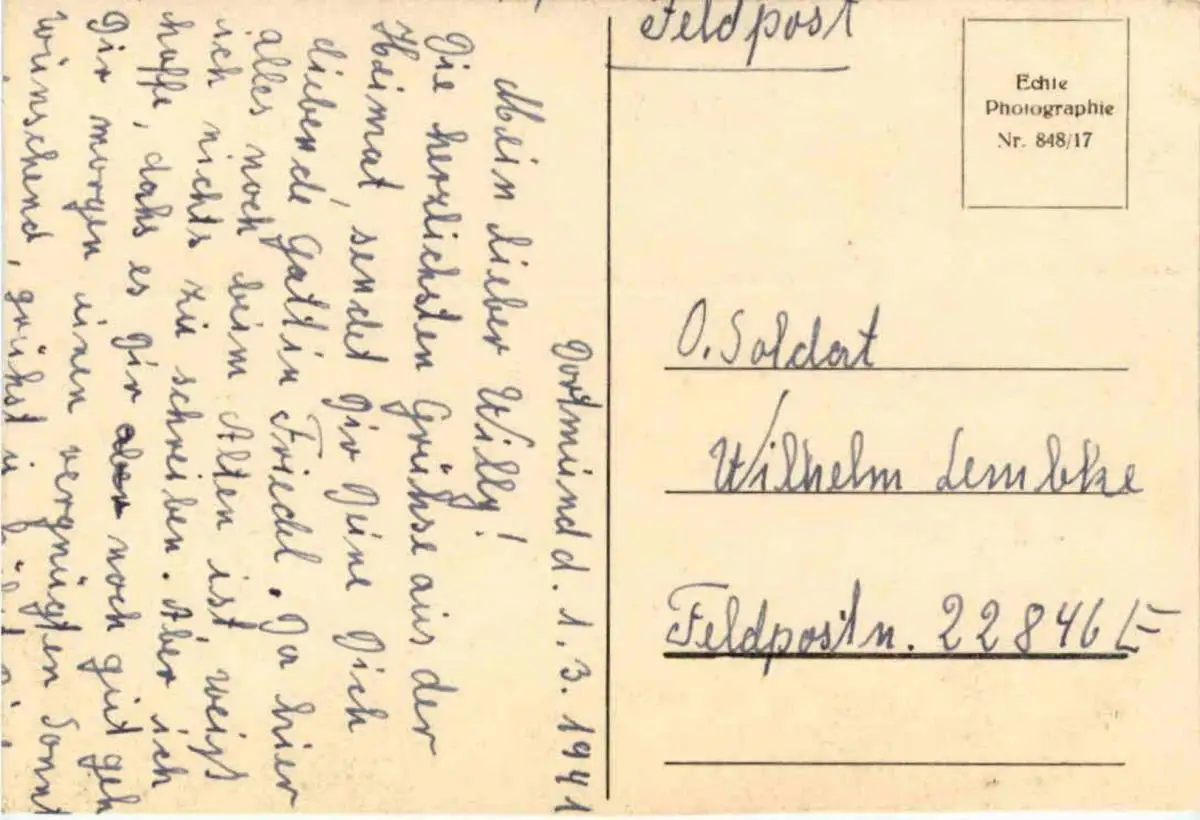 Dortmund d. 1.3.1941
Mein lieber Willy!
Die herzlichsten Grühse aus der
Heimat, sendet Dir Deine Dich
liebende Gattin Friedl. Da hier
alles noch beim Alten ist weiß
ich nichts zu schreiben. Aber ich
hoffe, dahs es Dir aber noch gut geh
Dir morgen einen vergnügten Sonnt
wünschend, grühst u.
Feldpost
Echte
Photographie
Nr. 848/17
O. Soldat
Wilhelm Lembke
Feldpostn. 22846 E